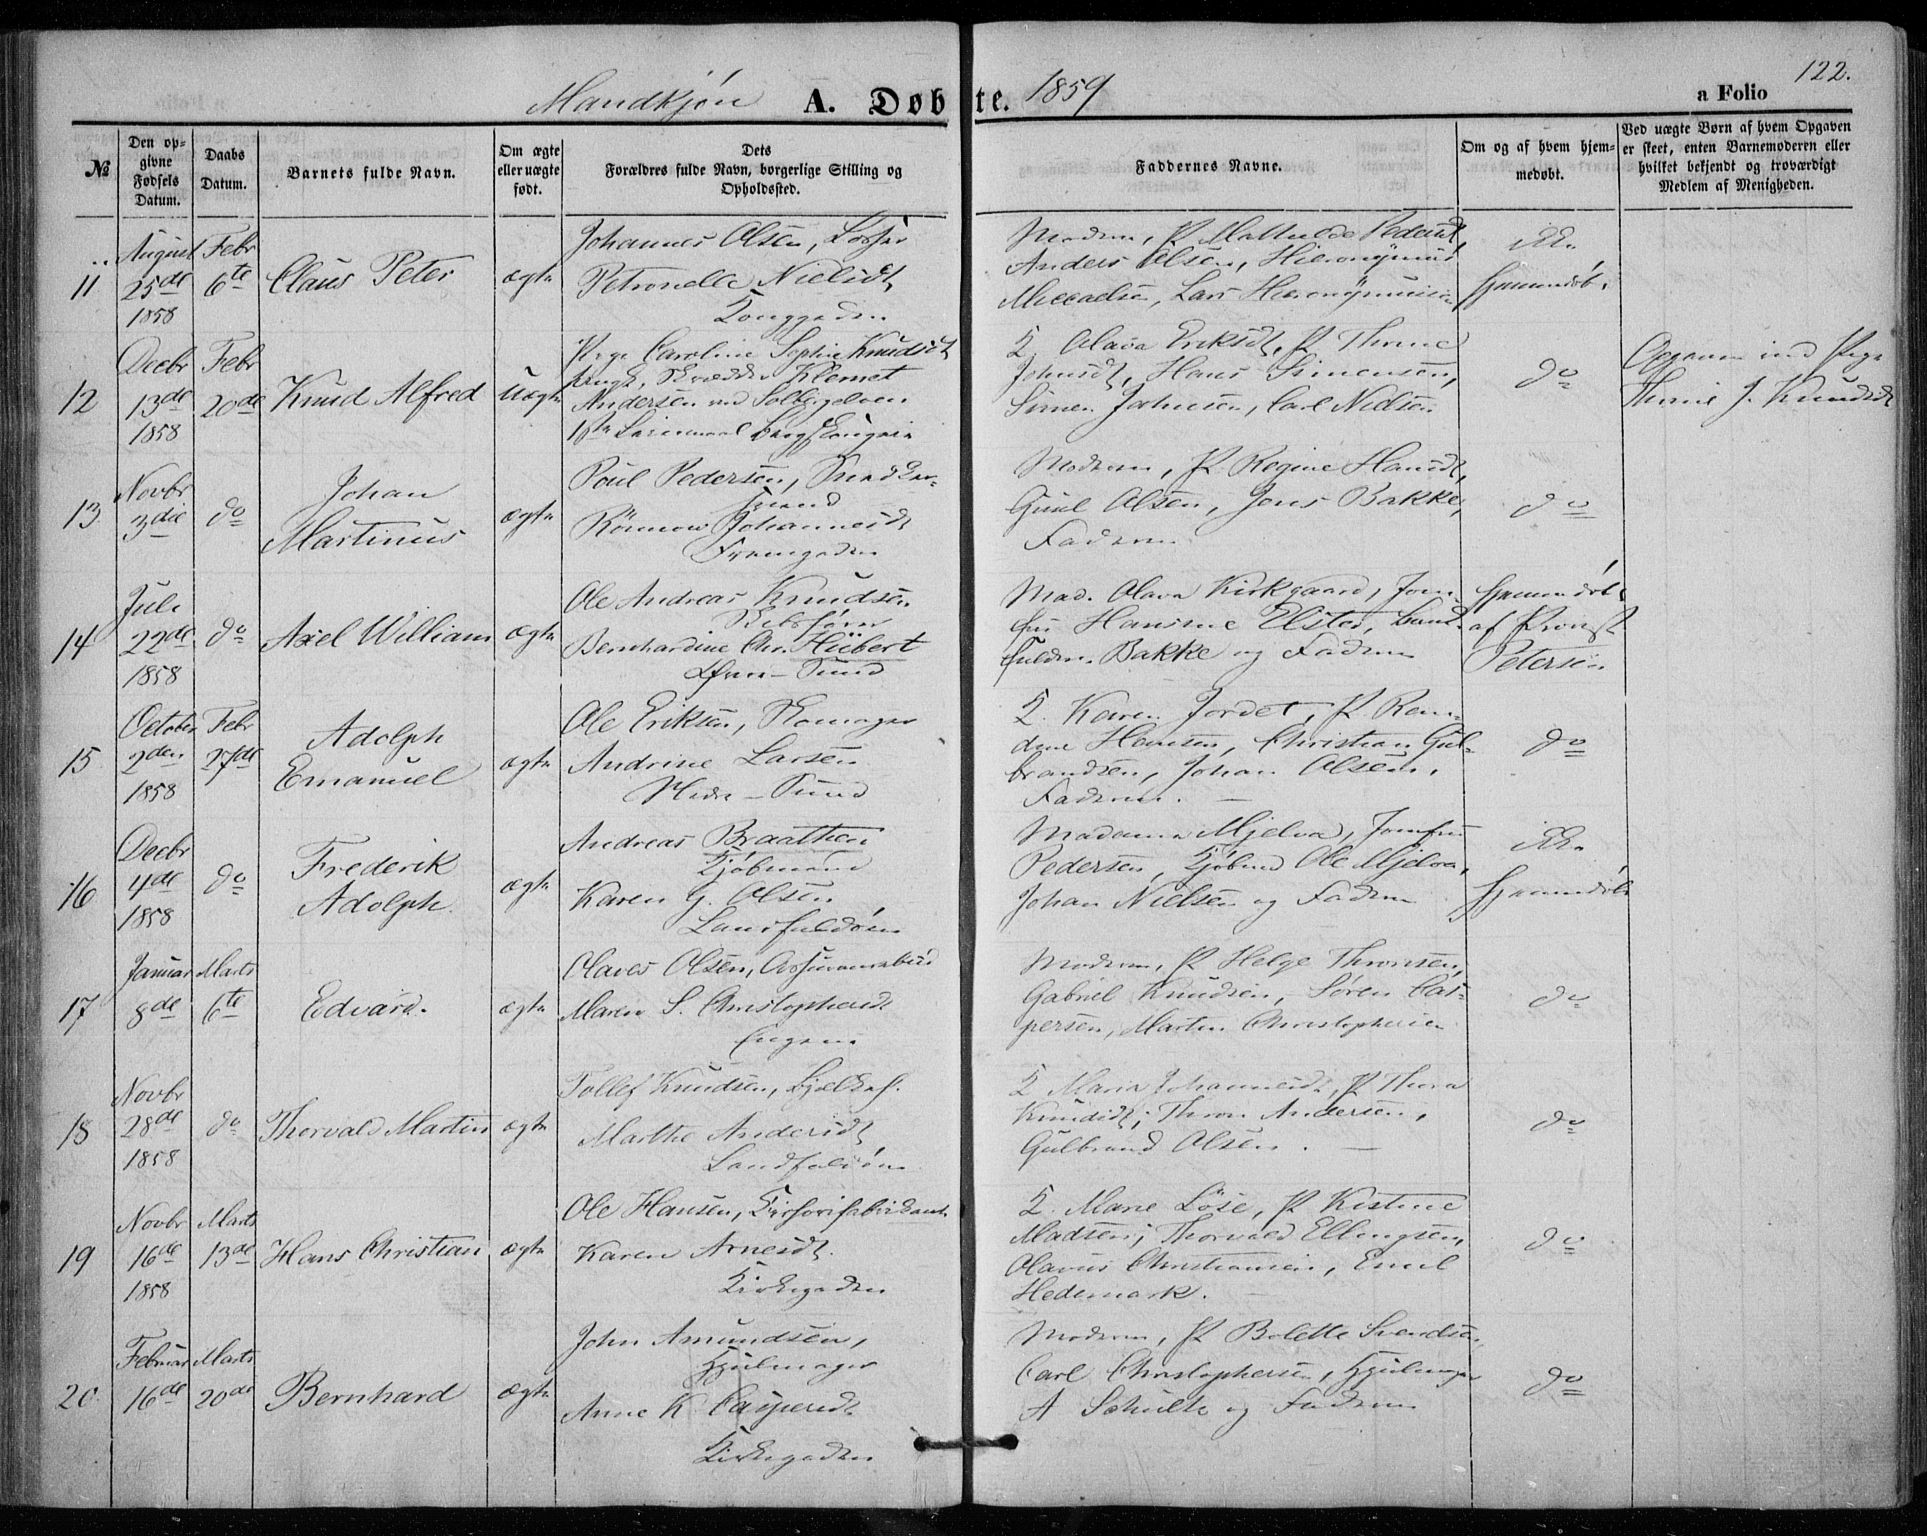 Mandkjøn A. Døbte. 1859
a Folio 122.
№
Den opgivne Fødsels Datum.
Daabs Datum.
Barnets fulde Navn.
Om ægte eller uægte født.
Dets Forældres fulde Navn, borgerlige Stilling og Opholdssted.
Faddernes Navne.
Om og af hvem hjemmedøbt.
Ved uægte Børn af hvem Opgaven er skeet, enten Barnemoderen eller hvilket bekjendt og troværdigt Medlem af Menigheden.
11
August 25de 1858
Febr 6te
Claus Peter
ægte
Johannes Olsen,
Petronelle Nielsdt,
Konggaden
Moderen, P. Mathilde Pedersdt,
Anders Olsen, Hieronymus
Micealsen, Lars Hieronymussen
ikke
hjemmedøbt
12
Decbr 13de 1858
Febr 20de
Knud Alfred
uægte
Pige Caroline Sophie Knudsdt
Klemet
Andersen ved Solbergelven
K. Olava Eriksdt, P. Thrine
Johnsdt, Hans Simensen,
Simen Johnsen, Carl Nielsen
do
Opgaven ved Pige
Thrine J. Knudsdt
13
Novbr 3die
do
Johan
Martinus
ægte
Poul Pedersen, Snedker-
svend
Rønnow Johannesdt
Tverrgaden
Moderen, P. Regine Hansdt,
Guul Olsen, Jens Bakke,
Faderen
do
14
Juli 22de 1858
do
Axel William
ægte
Ole Andreas Knudsen
Rebslager
Bernhardine Chr. Hiebert
Øvre-Sund
Mad. Olava Kirkgaard, Jom-
fru Hansine Elster,
Bakke og Faderen
hjemmedøbt
af Provst
Petersen
15
October 2den 1858
Febr 27de
Adolph
Emanuel
ægte
Ole Eriksen, Skomager
Andrine Larsen
Nedre-Sund
K. Karen Jordet, P. Ran-
dine Hansen, Christian Gul-
brandsen, Johan Olsen,
Faderen.
do
16
Decbr 4de 1858
do
Frederik
Adolph.
ægte
Andreas Braathen
Kjøbmand
Karen G. Olsen
Landfaldøen
Madame Mjelva, Jomfru
Pedersen, Kjøbmd Ole Mjelva,
Johan Nielsen og Faderen
ikke
hjemmedøbt
17
Januar 8de
Marts 6te
Edvard.
ægte
Olaves Olsen, Assuransebud
Maren S. Christophersdt
Engene
Moderen, P. Helge Thronsen,
Gabriel Knudsen, Søren Cas-
persen, Martin Christophersen
do
18
Novbr 28de 1858
do
Thorvald Martin
ægte
Tollef Knudsen,
Marthe Andersdt
Landfaldøen
K. Maria Johannesdt, P. Thora
Knudsdt, Thron Andersen,
Gulbrand Olsen.
do
19
Novbr 16de 1858
Marts 13de
Hans Christian
ægte
Ole Hansen, Cichorifabrikant
Karen Arnesdt.
Kirkegaden
K. Marie Løse, P. Kistine
Madsen; Thorvald Ellingsen,
Olavus Christiansen, Emil
Hedemark.
do
20
Februar 16de
Marts 20de
Bernhard
ægte
John Amundsen,
Hjulmager
Anne K. Caspersdt.
Kirkegaden
Moderen, P. Bolette Svendsen,
Carl Christophersen, Hjulmager
A Schulte og Faderen
do